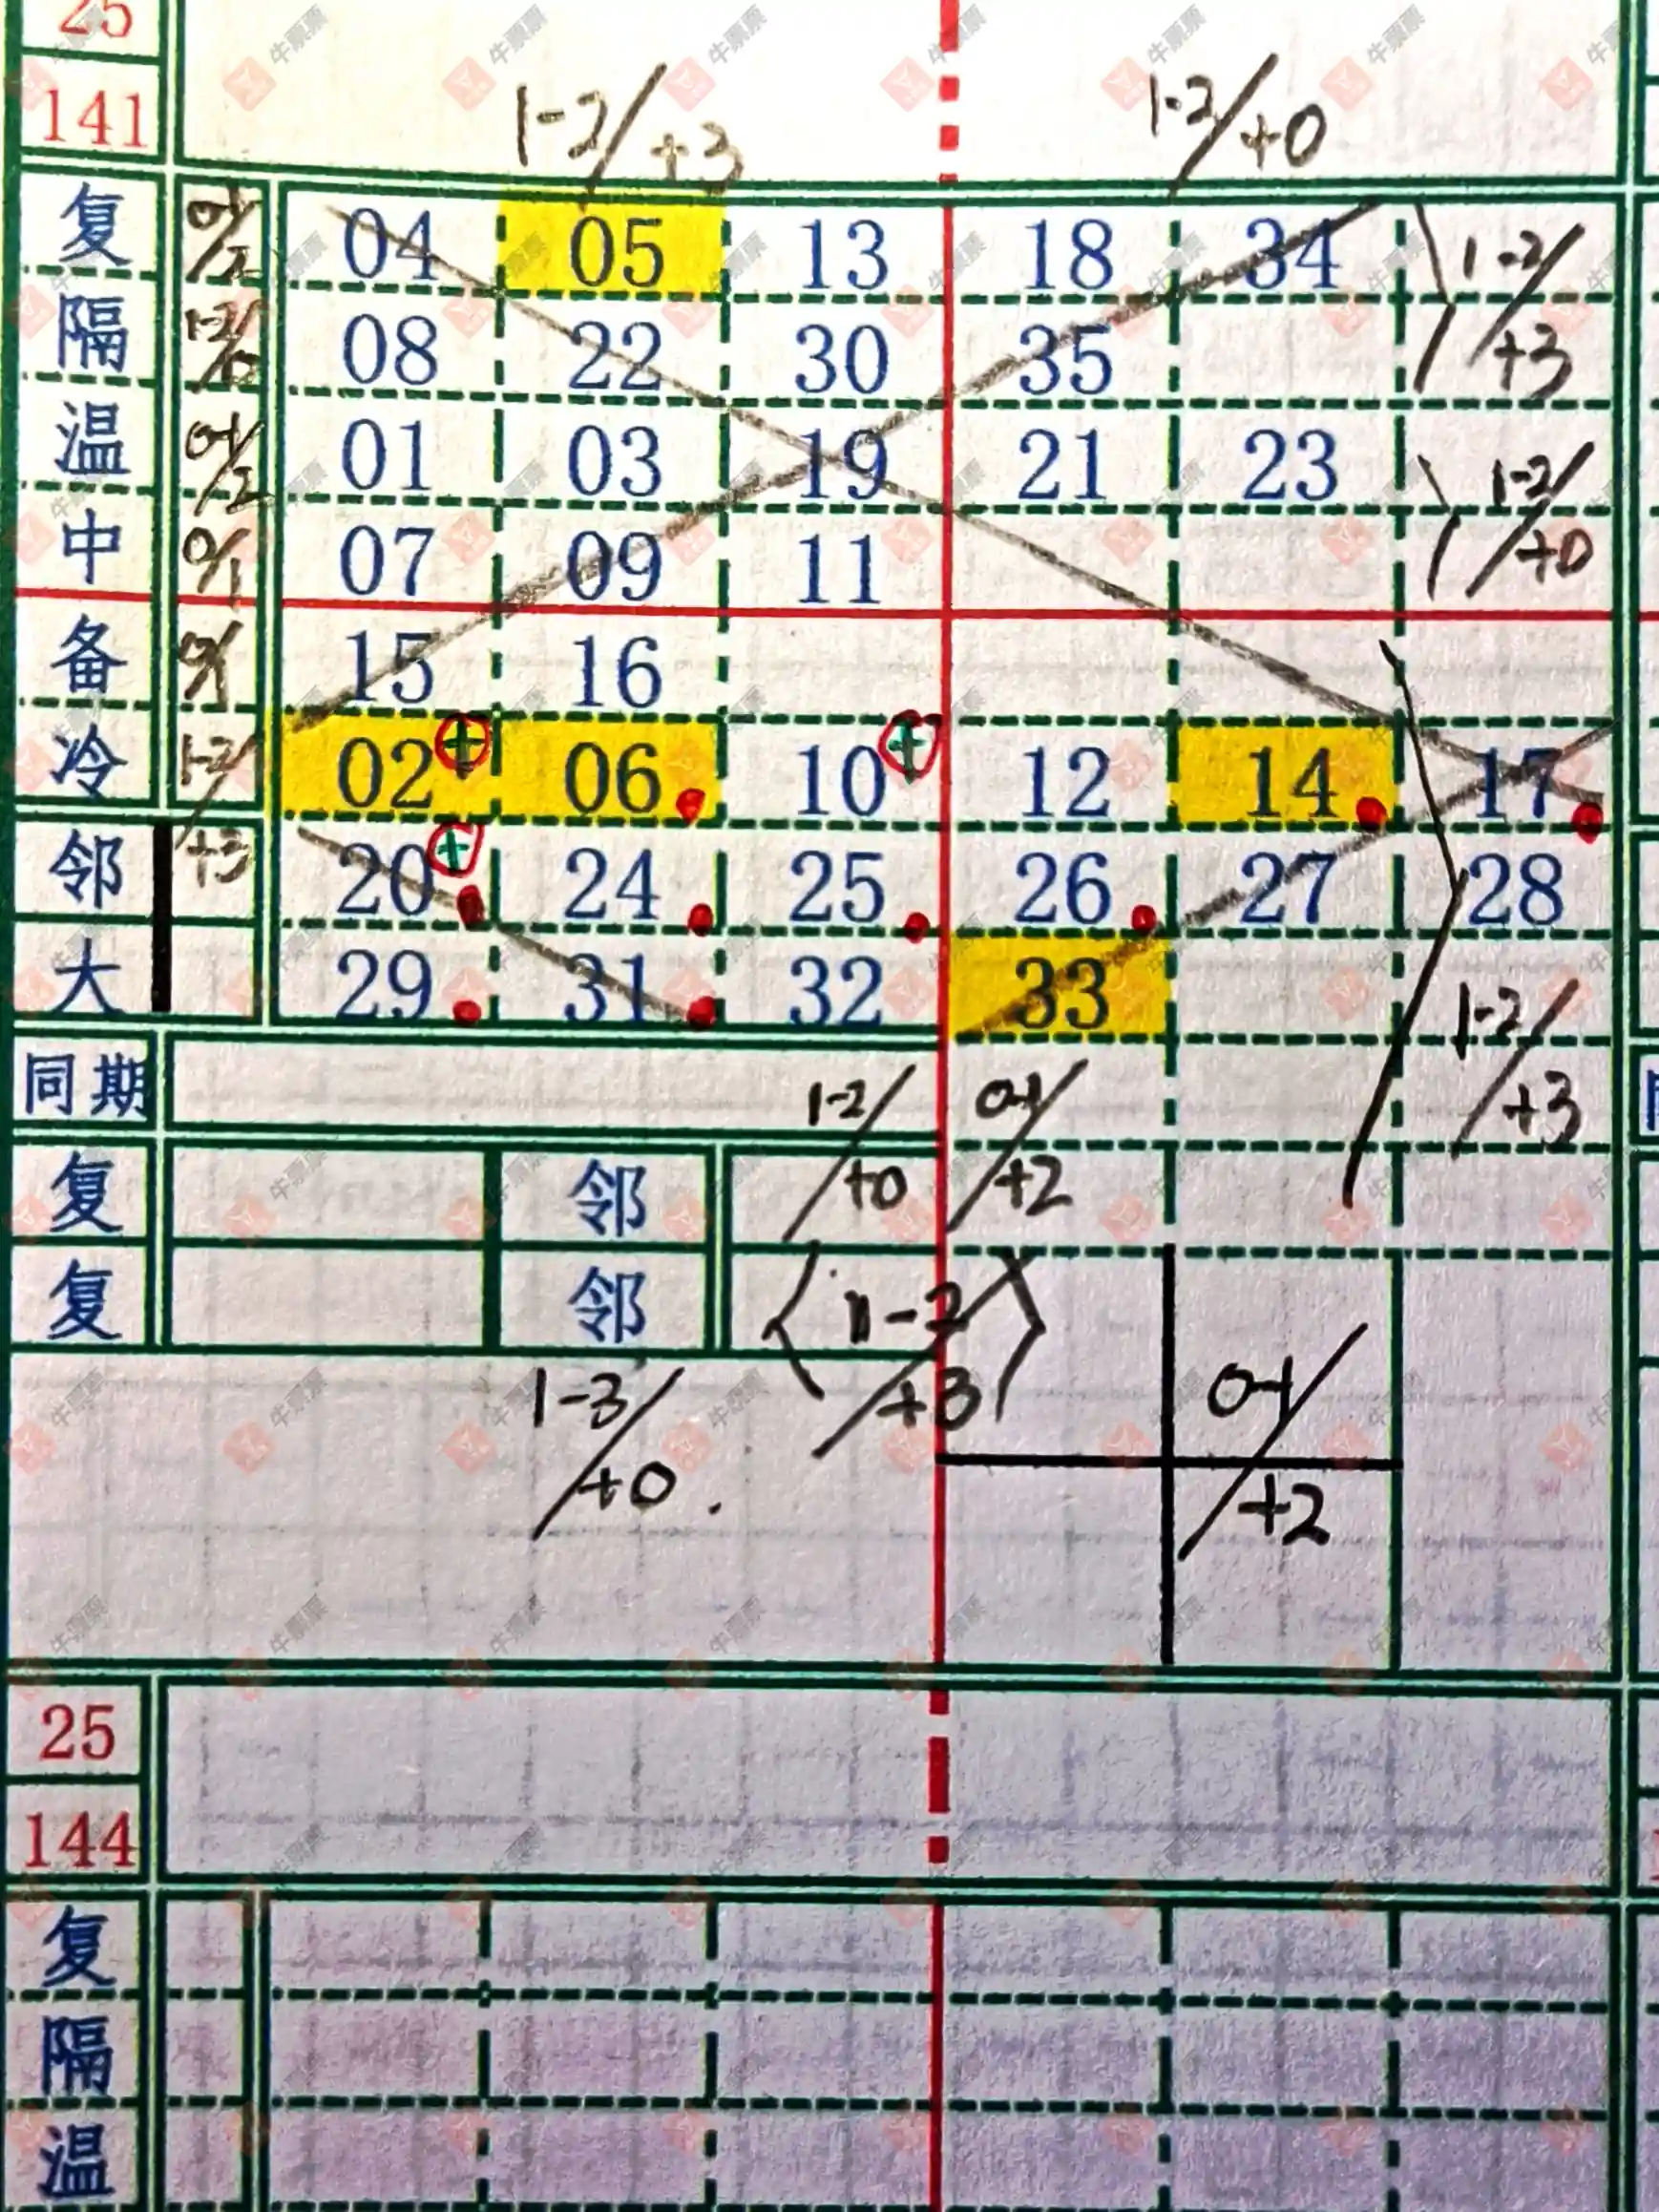 25
141
1-2/+3 1-2/+0
复 0-1/2 04 05 13 18 34 1-2/+3
隔 1-2/+0 08 22 30 35
温 0-1/2 01 03 19 21 23 1-2/+0
中 0/1 07 09 11
备 0/1 15 16
冷 1-2/+3 02 + 06 10 + 12 14 17
邻 20 + 24 25 26 27 28
大 29 31 32 33 1-2/+3
同期 1-2/+0 0-1/+2
复 邻
复 邻 1-2/+3
1-3/+0. 0-1/+2
25
144
复
隔
温
牛票票